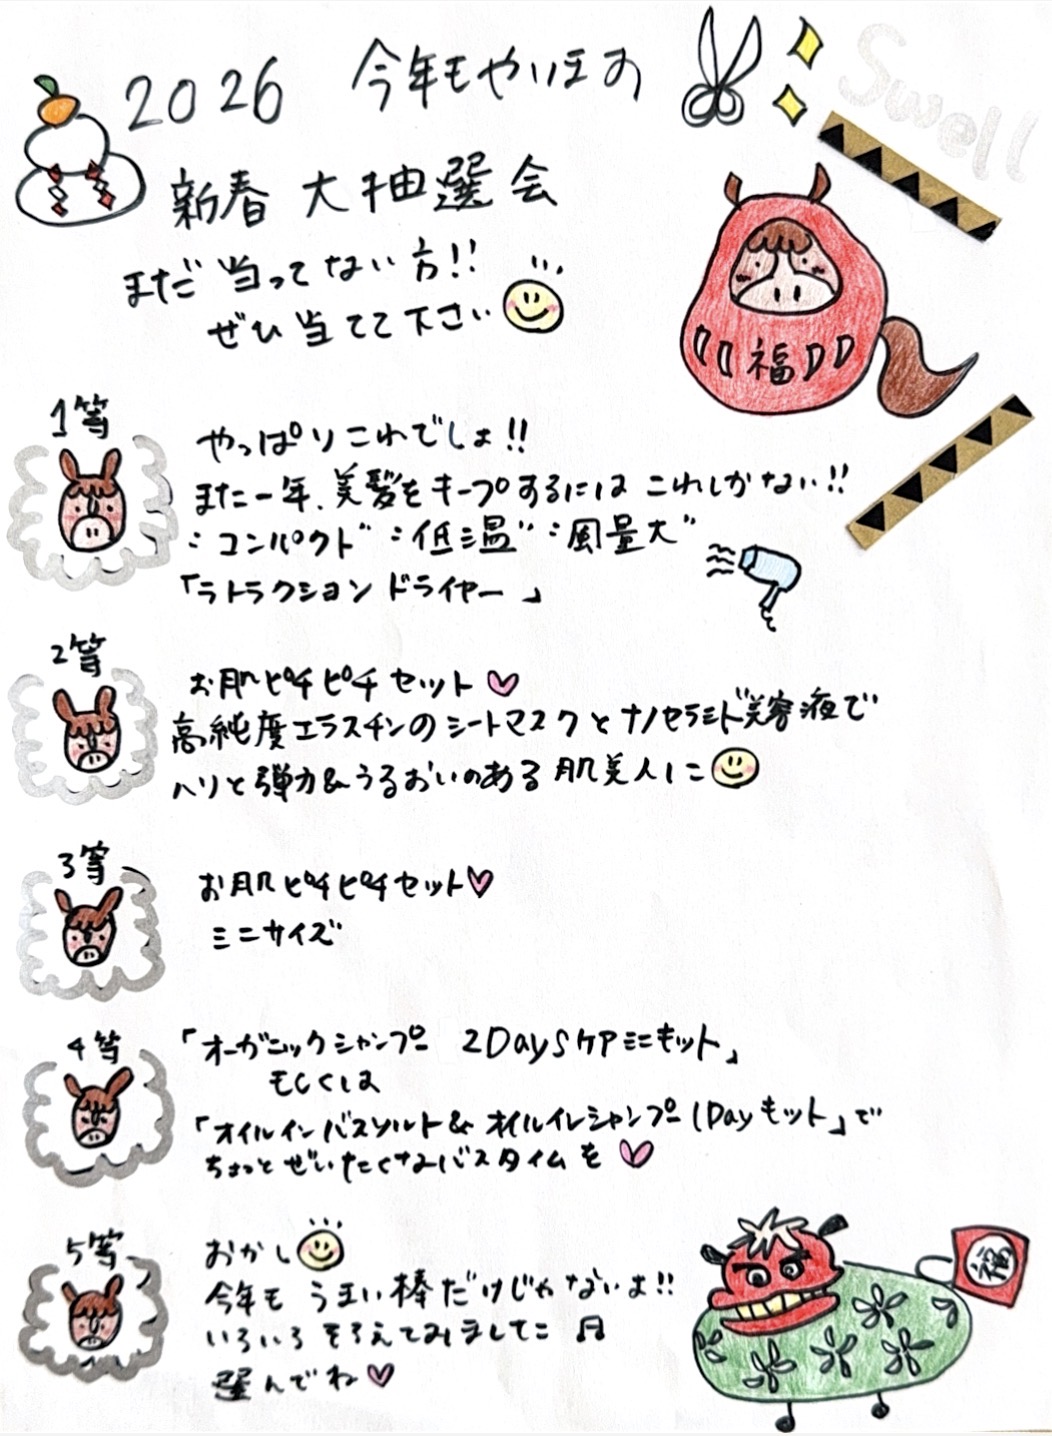 2026 今年もやります
Swell
新春 大抽選会
まだ当ってない方!!
ぜひ当てて下さい
福
1等
やっぱりこれでしょ!!
また一年、美髪をキープするにはこれしかない!!
"コンパクト" "低温" "風量大"
「ラトラクション ドライヤー」
2等
お肌ピチピチセット♡
高純度エラスチンのシートマスクとナノセラミド美容液で
ハリと弾力&うるおいのある肌美人に
3等
お肌ピチピチセット♡
ミニサイズ
4等
「オーガニックシャンプー 2Daysケアミニキット」
もしくは
「オイルインバスソルト&オイルインシャンプー1Dayキット」で
ちょっとぜいたくなバスタイムを♡
5等
おかし
今年もうまい棒だけじゃないよ!!
いろいろそろえてみました♫
選んでね♡
福